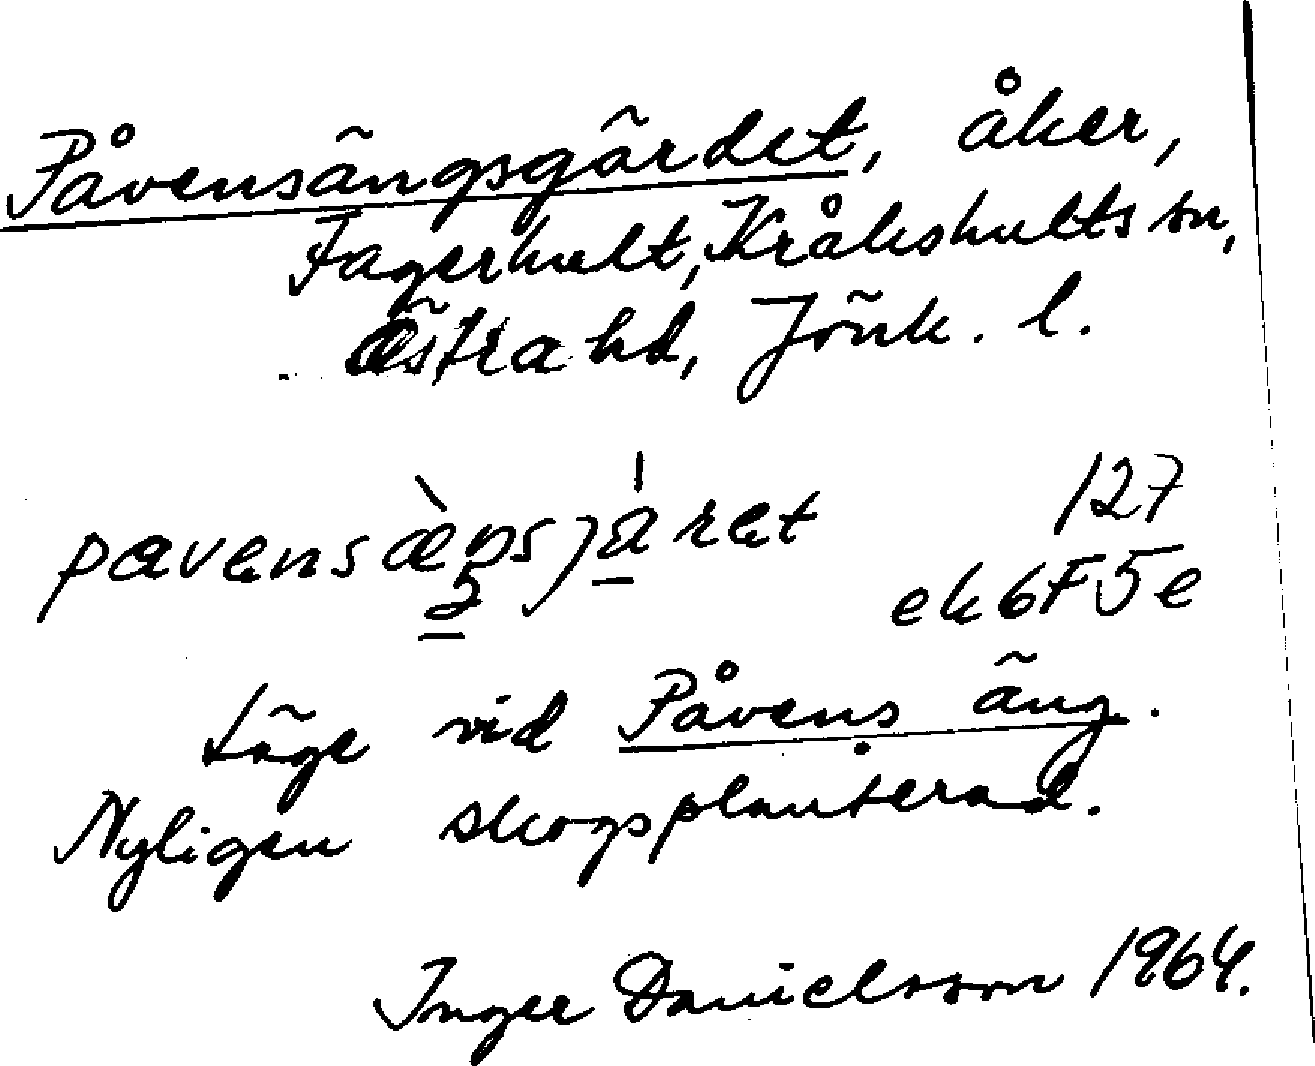 Påvensängsgärdet, åker,
Fagerhult, Kråkshults sn,
Östra hd, Jönk. l.
127
ek 6F5e
Läge vid Påvens äng.
Nyligen skogsplanterad.
Inger Danielsson 1964.